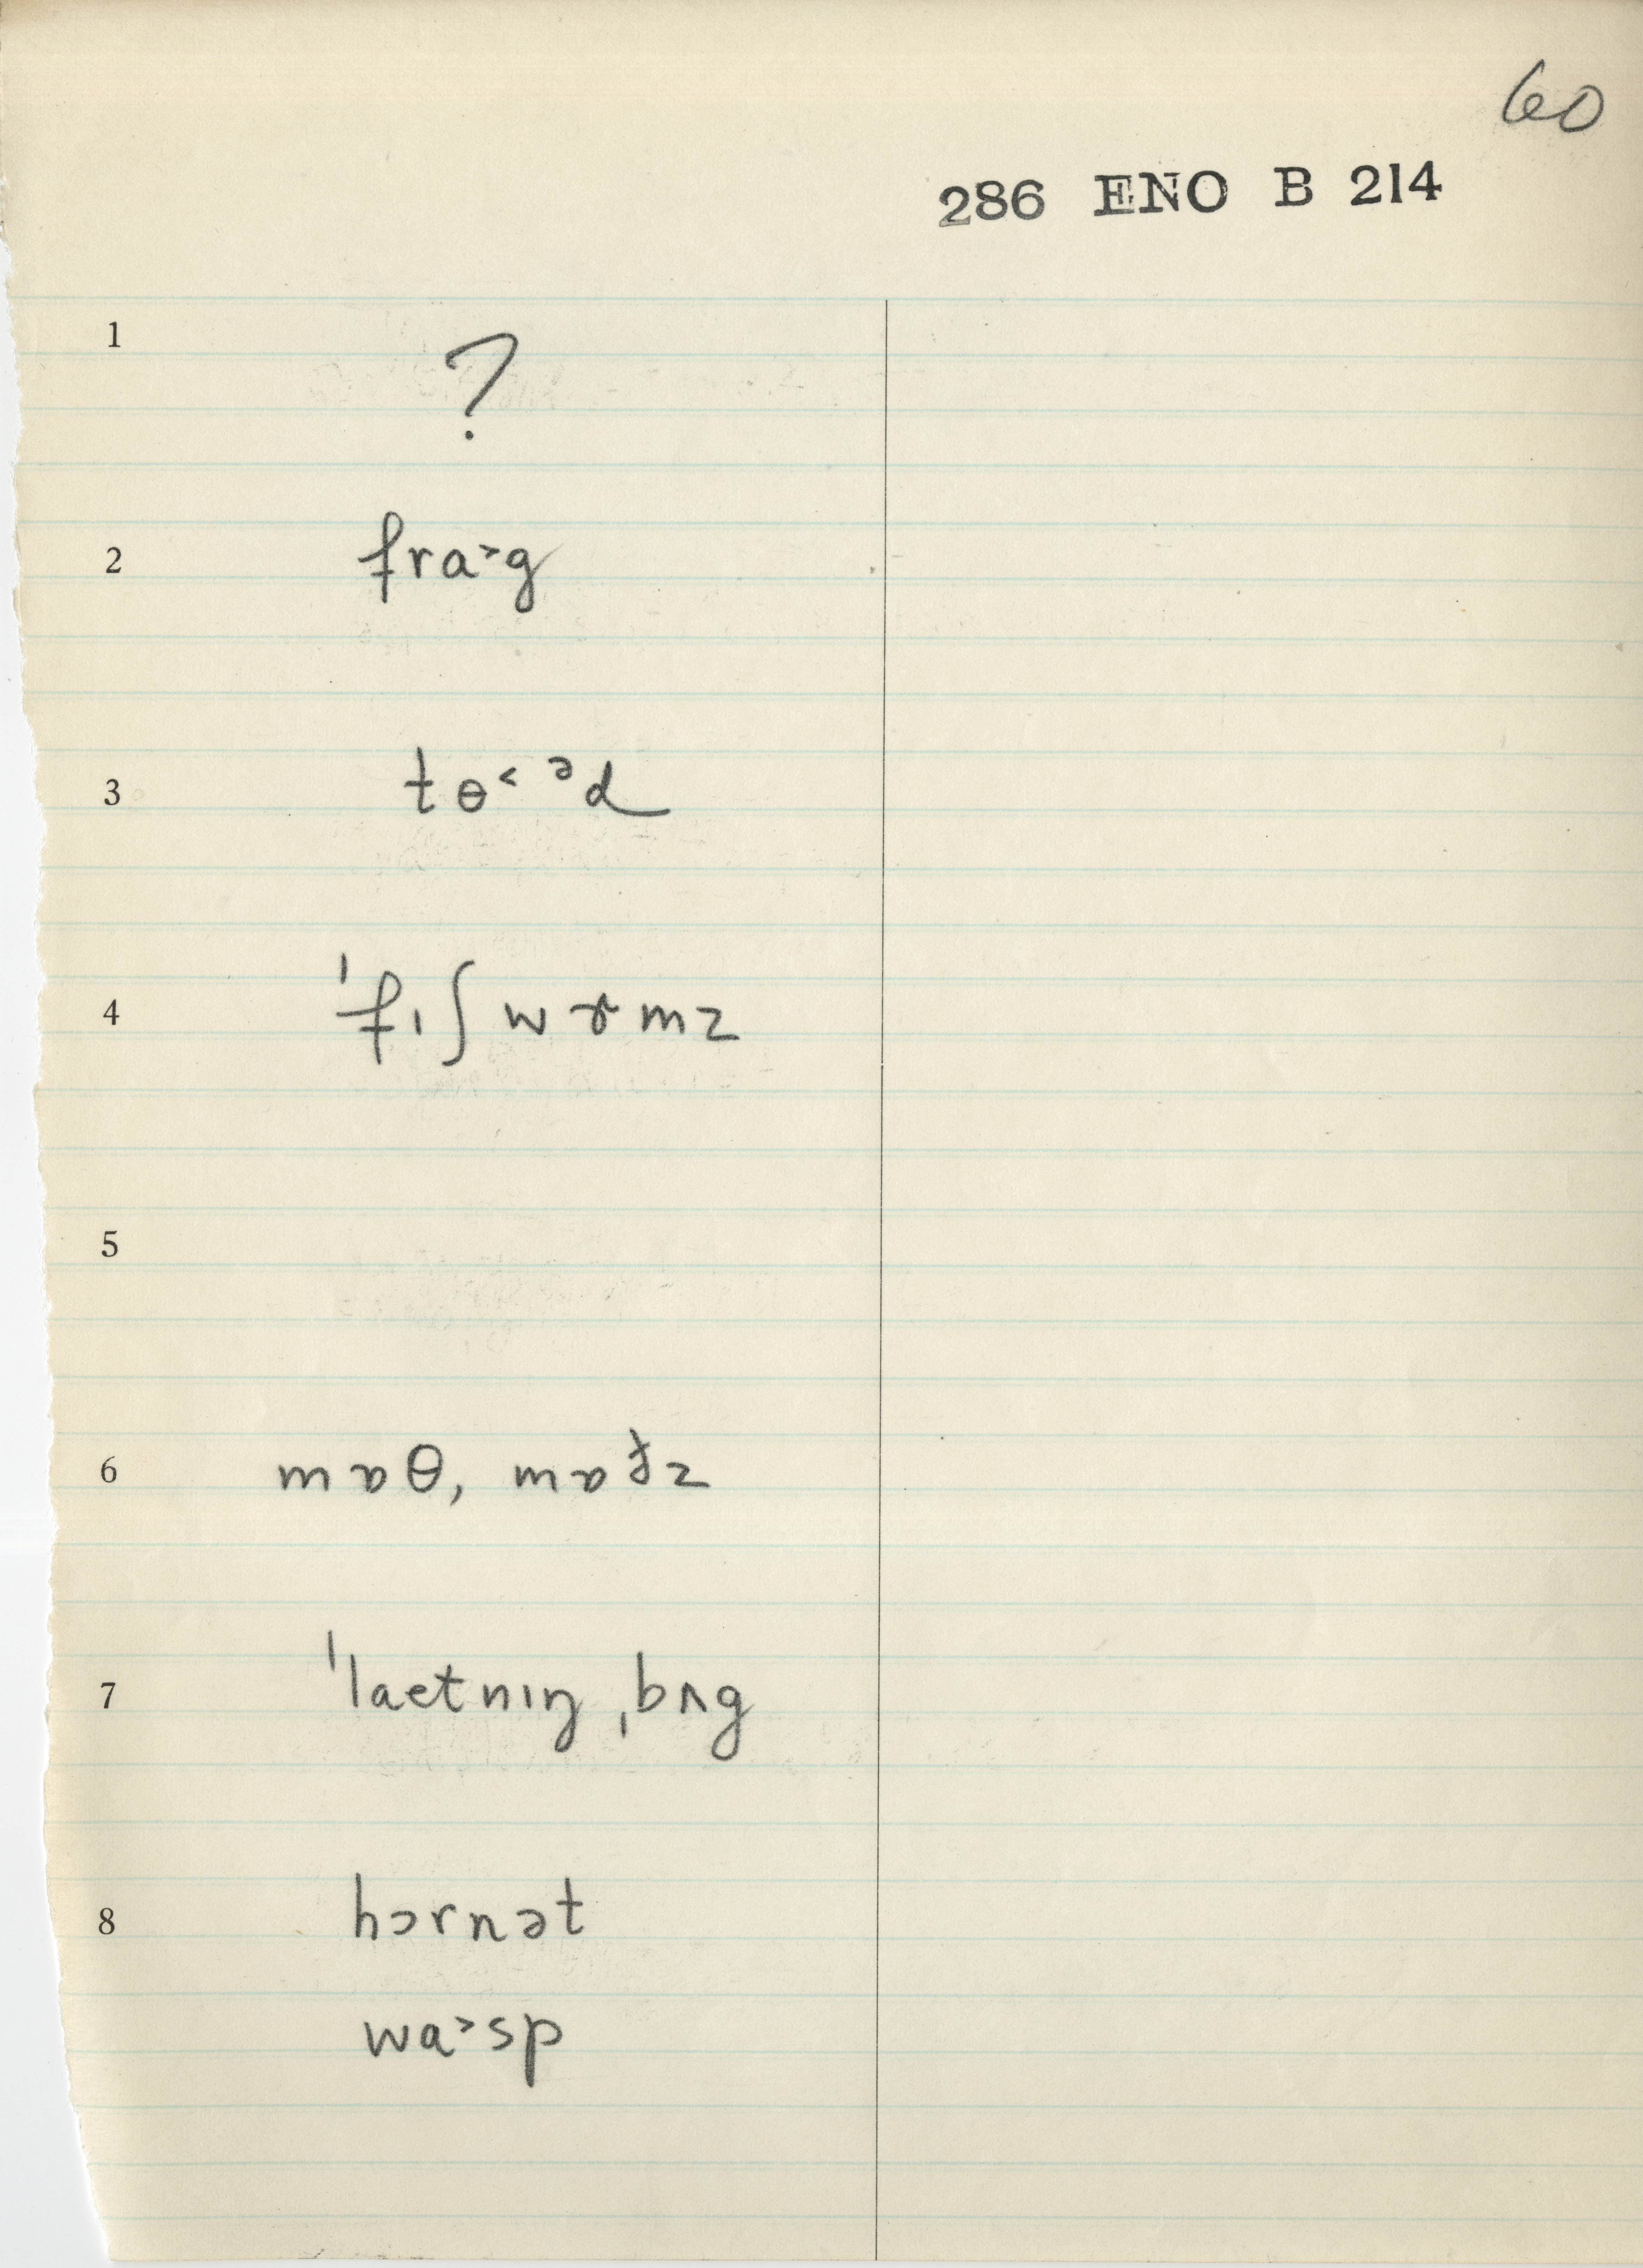 60
286 ENO B 214
1 ?
2 fra˃g
3 tɵ˂ ᵊd
4 ˈfɪʃwɚmz
5
6 mɒθ, mɒðz
7 ˈlaetnɪŋ ˌbʌg
8 hɔrnət
wa˃sp